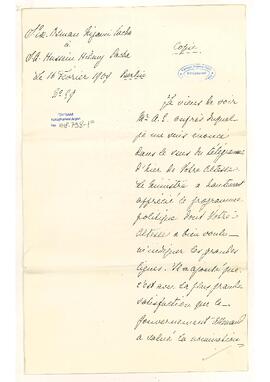 S. Ex. Osman Nizami Pacha
à
S. A. Hussein Hilmy Pacha
le 16 Février 1909 Berlin
No 59
Copie
Je viens de voir
Mr A. E. auprès duquel
je me suis énoncé
dans le sens du télégramme
d'hier de Votre Altesse.
Le Ministre a hautement
apprécié le programme
politique dont Votre
Altesse a bien voulu
m'indiquer les grandes
lignes. Il a ajouté que
c'est avec la plus grande
satisfaction que le
gouvernement allemand
a salué la nomination